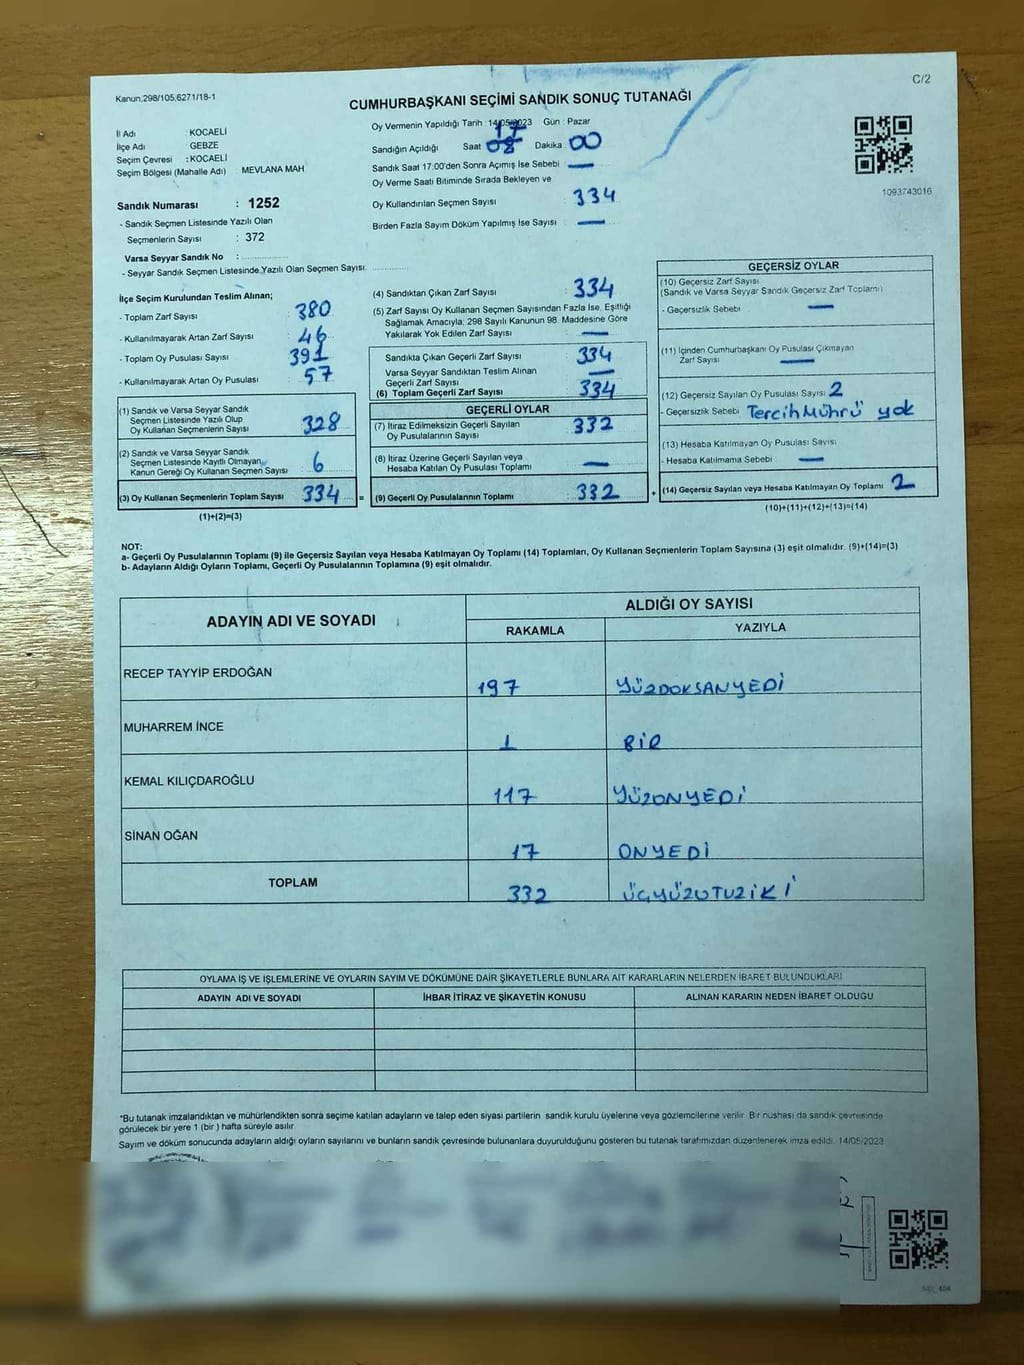 C/2
Kanun,298/105,6271/18-1
CUMHURBAŞKANI SEÇİMİ SANDIK SONUÇ TUTANAĞI
İl Adı : KOCAELİ
İlçe Adı : GEBZE
Seçim Çevresi : KOCAELİ
Seçim Bölgesi (Mahalle Adı) MEVLANA MAH
Sandık Numarası : 1252
- Sandık Seçmen Listesinde Yazılı Olan
Seçmenlerin Sayısı : 372
Varsa Seyyar Sandık No :
- Seyyar Sandık Seçmen Listesinde Yazılı Olan Seçmen Sayısı:
Oy Vermenin Yapıldığı Tarih : 14/05/2023 Gün : Pazar
Sandığın Açıldığı Saat 17 08 Dakika 00
Sandık Saat 17:00'den Sonra Açımış İse Sebebi —
Oy Verme Saati Bitiminde Sırada Bekleyen ve
Oy Kullandırılan Seçmen Sayısı : 334
Birden Fazla Sayım Döküm Yapılmış İse Sayısı : —
1093743016
İlçe Seçim Kurulundan Teslim Alınan;
- Toplam Zarf Sayısı : 380
- Kullanılmayarak Artan Zarf Sayısı : 46
- Toplam Oy Pusulası Sayısı : 391
- Kullanılmayarak Artan Oy Pusulası : 57
(1) Sandık ve Varsa Seyyar Sandık
Seçmen Listesinde Yazılı Olup
Oy Kullanan Seçmenlerin Sayısı : 328
(2) Sandık ve Varsa Seyyar Sandık
Seçmen Listesinde Kayıtlı Olmayan,
Kanun Gereği Oy Kullanan Seçmen Sayısı : 6
(3) Oy Kullanan Seçmenlerin Toplam Sayısı : 334 =
(1)+(2)=(3)
(4) Sandıktan Çıkan Zarf Sayısı : 334
(5) Zarf Sayısı Oy Kullanan Seçmen Sayısından Fazla İse, Eşitliği
Sağlamak Amacıyla, 298 Sayılı Kanunun 98. Maddesine Göre
Yakılarak Yok Edilen Zarf Sayısı : —
Sandıkta Çıkan Geçerli Zarf Sayısı : 334
Varsa Seyyar Sandıktan Teslim Alınan
Geçerli Zarf Sayısı : —
(6) Toplam Geçerli Zarf Sayısı : 334
GEÇERLİ OYLAR
(7) İtiraz Edilmeksizin Geçerli Sayılan
Oy Pusulalarının Sayısı : 332
(8) İtiraz Üzerine Geçerli Sayılan veya
Hesaba Katılan Oy Pusulası Toplamı : —
(9) Geçerli Oy Pusulalarının Toplamı : 332 +
GEÇERSİZ OYLAR
(10) Geçersiz Zarf Sayısı
(Sandık ve Varsa Seyyar Sandık Geçersiz Zarf Toplamı)
- Geçersizlik Sebebi : —
(11) İçinden Cumhurbaşkanı Oy Pusulası Çıkmayan
Zarf Sayısı : —
(12) Geçersiz Sayılan Oy Pusulası Sayısı : 2
- Geçersizlik Sebebi Tercih Mührü yok
(13) Hesaba Katılmayan Oy Pusulası Sayısı
- Hesaba Katılmama Sebebi : —
(14) Geçersiz Sayılan veya Hesaba Katılmayan Oy Toplamı : 2
(10)+(11)+(12)+(13)=(14)
NOT:
a- Geçerli Oy Pusulalarının Toplamı (9) ile Geçersiz Sayılan veya Hesaba Katılmayan Oy Toplamı (14) Toplamları, Oy Kullanan Seçmenlerin Toplam Sayısına (3) eşit olmalıdır. (9)+(14)=(3)
b- Adayların Aldığı Oyların Toplamı, Geçerli Oy Pusulalarının Toplamına (9) eşit olmalıdır.
ADAYIN ADI VE SOYADI ALDIĞI OY SAYISI
RAKAMLA YAZIYLA
RECEP TAYYİP ERDOĞAN 197 YÜZDOKSANYEDİ
MUHARREM İNCE 1 BİR
KEMAL KILIÇDAROĞLU 117 YÜZONYEDİ
SİNAN OĞAN 17 ONYEDİ
TOPLAM 332 ÜÇYÜZOTUZİKİ
OYLAMA İŞ VE İŞLEMLERİNE VE OYLARIN SAYIM VE DÖKÜMÜNE DAİR ŞİKAYETLERLE BUNLARA AİT KARARLARIN NELERDEN İBARET BULUNDUKLARI
ADAYIN ADI VE SOYADI İHBAR İTİRAZ VE ŞİKAYETİN KONUSU ALINAN KARARIN NEDEN İBARET OLDUĞU
*Bu tutanak imzalandıktan ve mühürlendikten sonra seçime katılan adayların ve talep eden siyasi partilerin sandık kurulu üyelerine veya gözlemcilerine verilir. Bir nüshası da sandık çevresinde
görülecek bir yere 1 (bir ) hafta süreyle asılır.
Sayım ve döküm sonucunda adayların aldığı oyların sayılarını ve bunların sandık çevresinde bulunanlara duyurulduğunu gösteren bu tutanak tarafımızdan düzenlenerek imza edildi. 14/05/2023